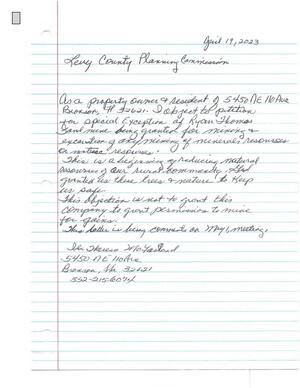 April 19, 2023
Levy County Planning Commission
As a property owner & resident of 5450 NE 110 Ave
Bronson, Fl 32621. I object to petition
for special Exception of Ryan Thomas
Sand mine being granted for mining &
excavation of any mining of mineral resources
or natural resource.
This is a beginning of reducing natural
resources of our rural community. God
granted us these trees & nature to keep
us safe.
This objection is not to grant this
company to grant permission to mine
for gains.
This letter is being comments on May 1, meeting.
Theresa
5450 NE 110 Ave
Bronson, Fla 32621
352-215-